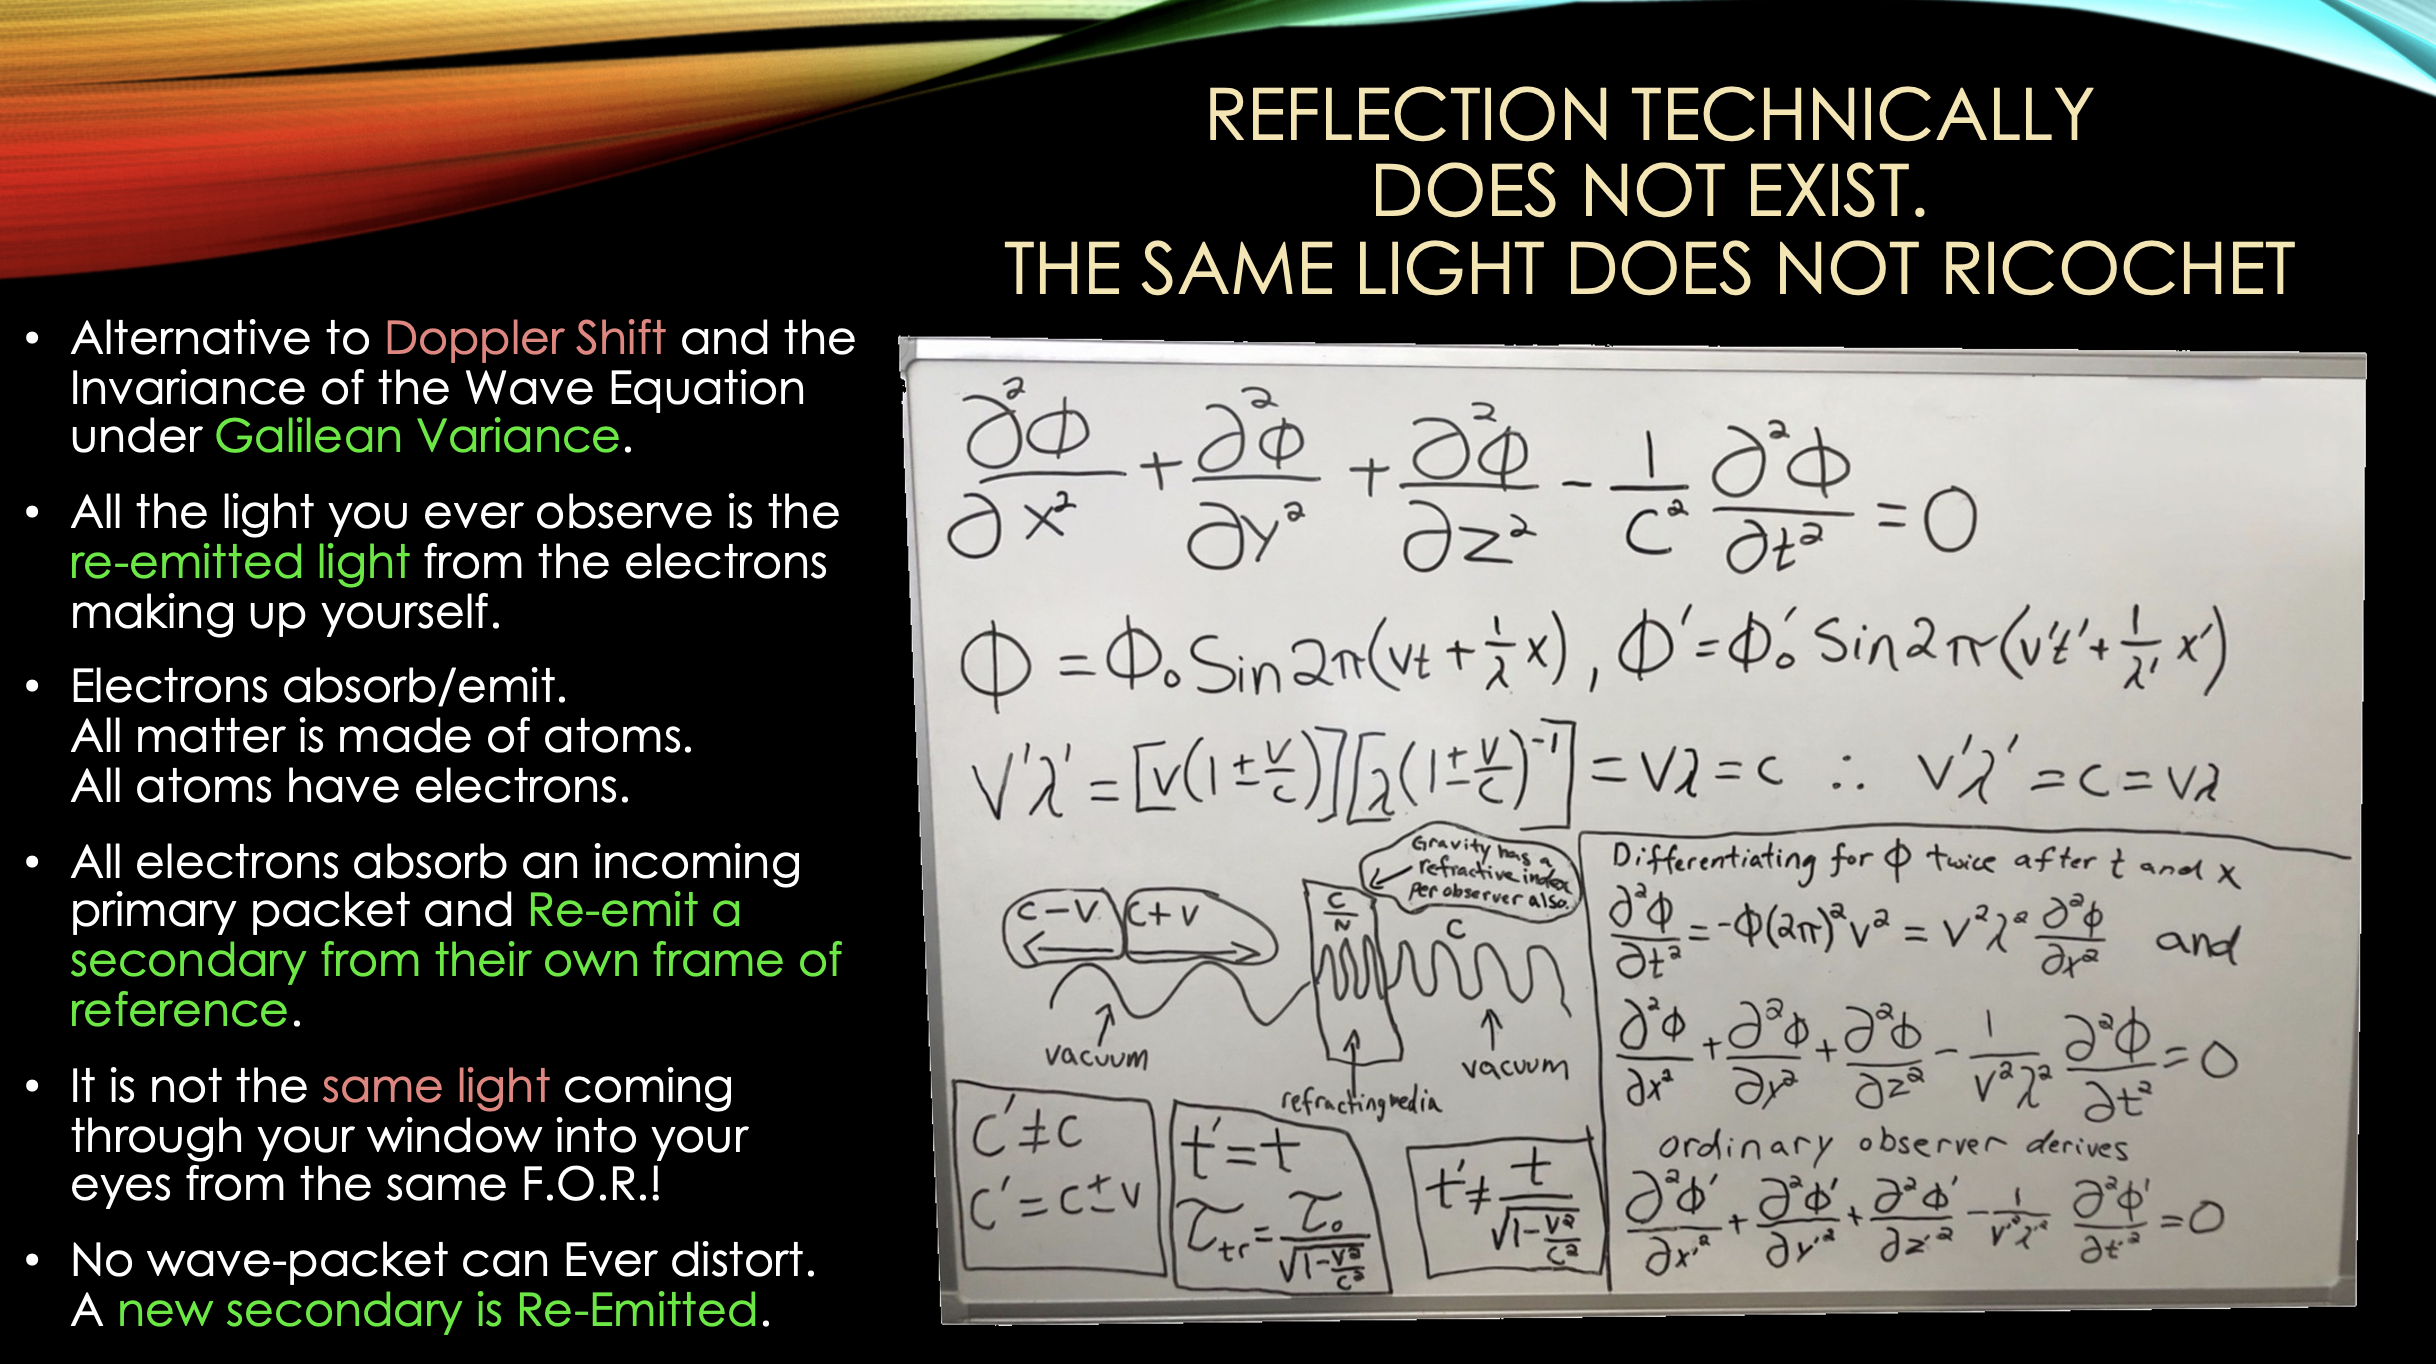 REFLECTION TECHNICALLY
DOES NOT EXIST.
THE SAME LIGHT DOES NOT RICOCHET
• Alternative to Doppler Shift and the
Invariance of the Wave Equation
under Galilean Variance.
• All the light you ever observe is the
re-emitted light from the electrons
making up yourself.
• Electrons absorb/emit.
All matter is made of atoms.
All atoms have electrons.
• All electrons absorb an incoming
primary packet and Re-emit a
secondary from their own frame of
reference.
• It is not the same light coming
through your window into your
eyes from the same F.O.R.!
• No wave-packet can Ever distort.
A new secondary is Re-Emitted.
∂²Φ/∂x² + ∂²Φ/∂y² + ∂²Φ/∂z² - 1/c² ∂²Φ/∂t² = 0
Φ = Φ₀ Sin2π(vt + 1/λ x), Φ' = Φ₀' Sin2π(v't' + 1/λ' x')
V'λ' = [v(1 ± v/c)][λ(1 ± v/c)⁻¹] = Vλ = c ∴ V'λ' = c = Vλ
c - v c + v
Gravity has a
refractive index
per observer also.
c/N
c
vacuum
refracting media
vacuum
c' ≠ c
c' = c ± v
t' = t
τtr = τ₀/√(1-v²/c²)
t' ≠ t/√(1-v²/c²)
Differentiating for Φ twice after t and x
∂²Φ/∂t² = -Φ(2π)²v² = v²λ² ∂²Φ/∂x² and
∂²Φ/∂x² + ∂²Φ/∂y² + ∂²Φ/∂z² - 1/v²λ² ∂²Φ/∂t² = 0
ordinary observer derives
∂²Φ'/∂x'² + ∂²Φ'/∂y'² + ∂²Φ'/∂z'² - 1/v'²λ'² ∂²Φ'/∂t'² = 0